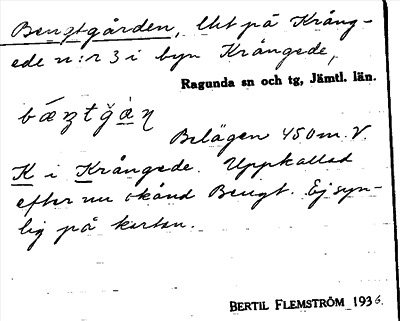 Bengtgården, lht på Krång-
ede n:r 3 i byn Krångede,
Ragunda sn och tg, Jämtl. län.
Belägen 450 m. V.
K i Krångede. Uppkallad
efter nu okänd Bengt. Ej syn-
lig på kartan.
BERTIL FLEMSTRÖM 1936.